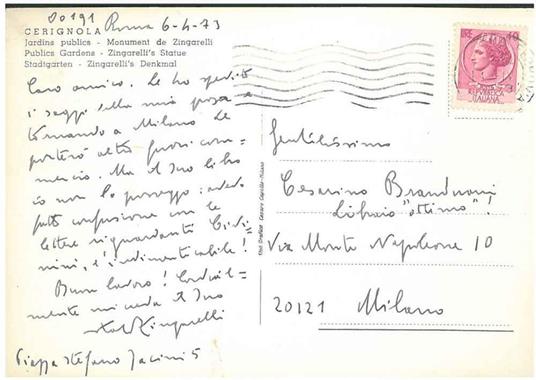 00191 Roma 6-4-73
CERIGNOLA
Jardins publics - Monument de Zingarelli
Publics Gardens - Zingarelli's Statue
Stadtgarten - Zingarelli's Denkmal
Caro amico. Le ho spedito
i saggi della mia
tornando a Milano Le
porterò altro fuori com=
mercio. Ma il Suo libro
io non lo posseggo:
fatto confusione con le
lettere riguardanti
mini, è indimenticabile!
Buon lavoro! Cordial=
mente mi creda il Suo
Italo Zingarelli
Piazza Stefano Jacini 5
Gentilissimo
Cesarino Branduani
Libraio "ottimo"!
Via Monte Napoleone 10
20121 Milano
ITALIANA